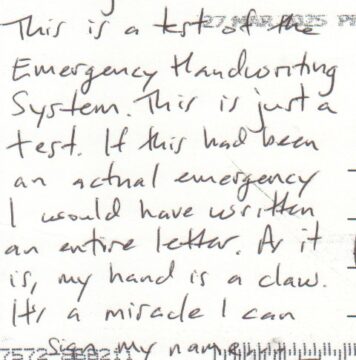 27 MAR 2025 P
This is a test of the
Emergency Handwriting
System. This is just a
test. If this had been
an actual emergency
I would have written
an entire letter. As it
is, my hand is a claw.
It's a miracle I can
sign my name.
7572